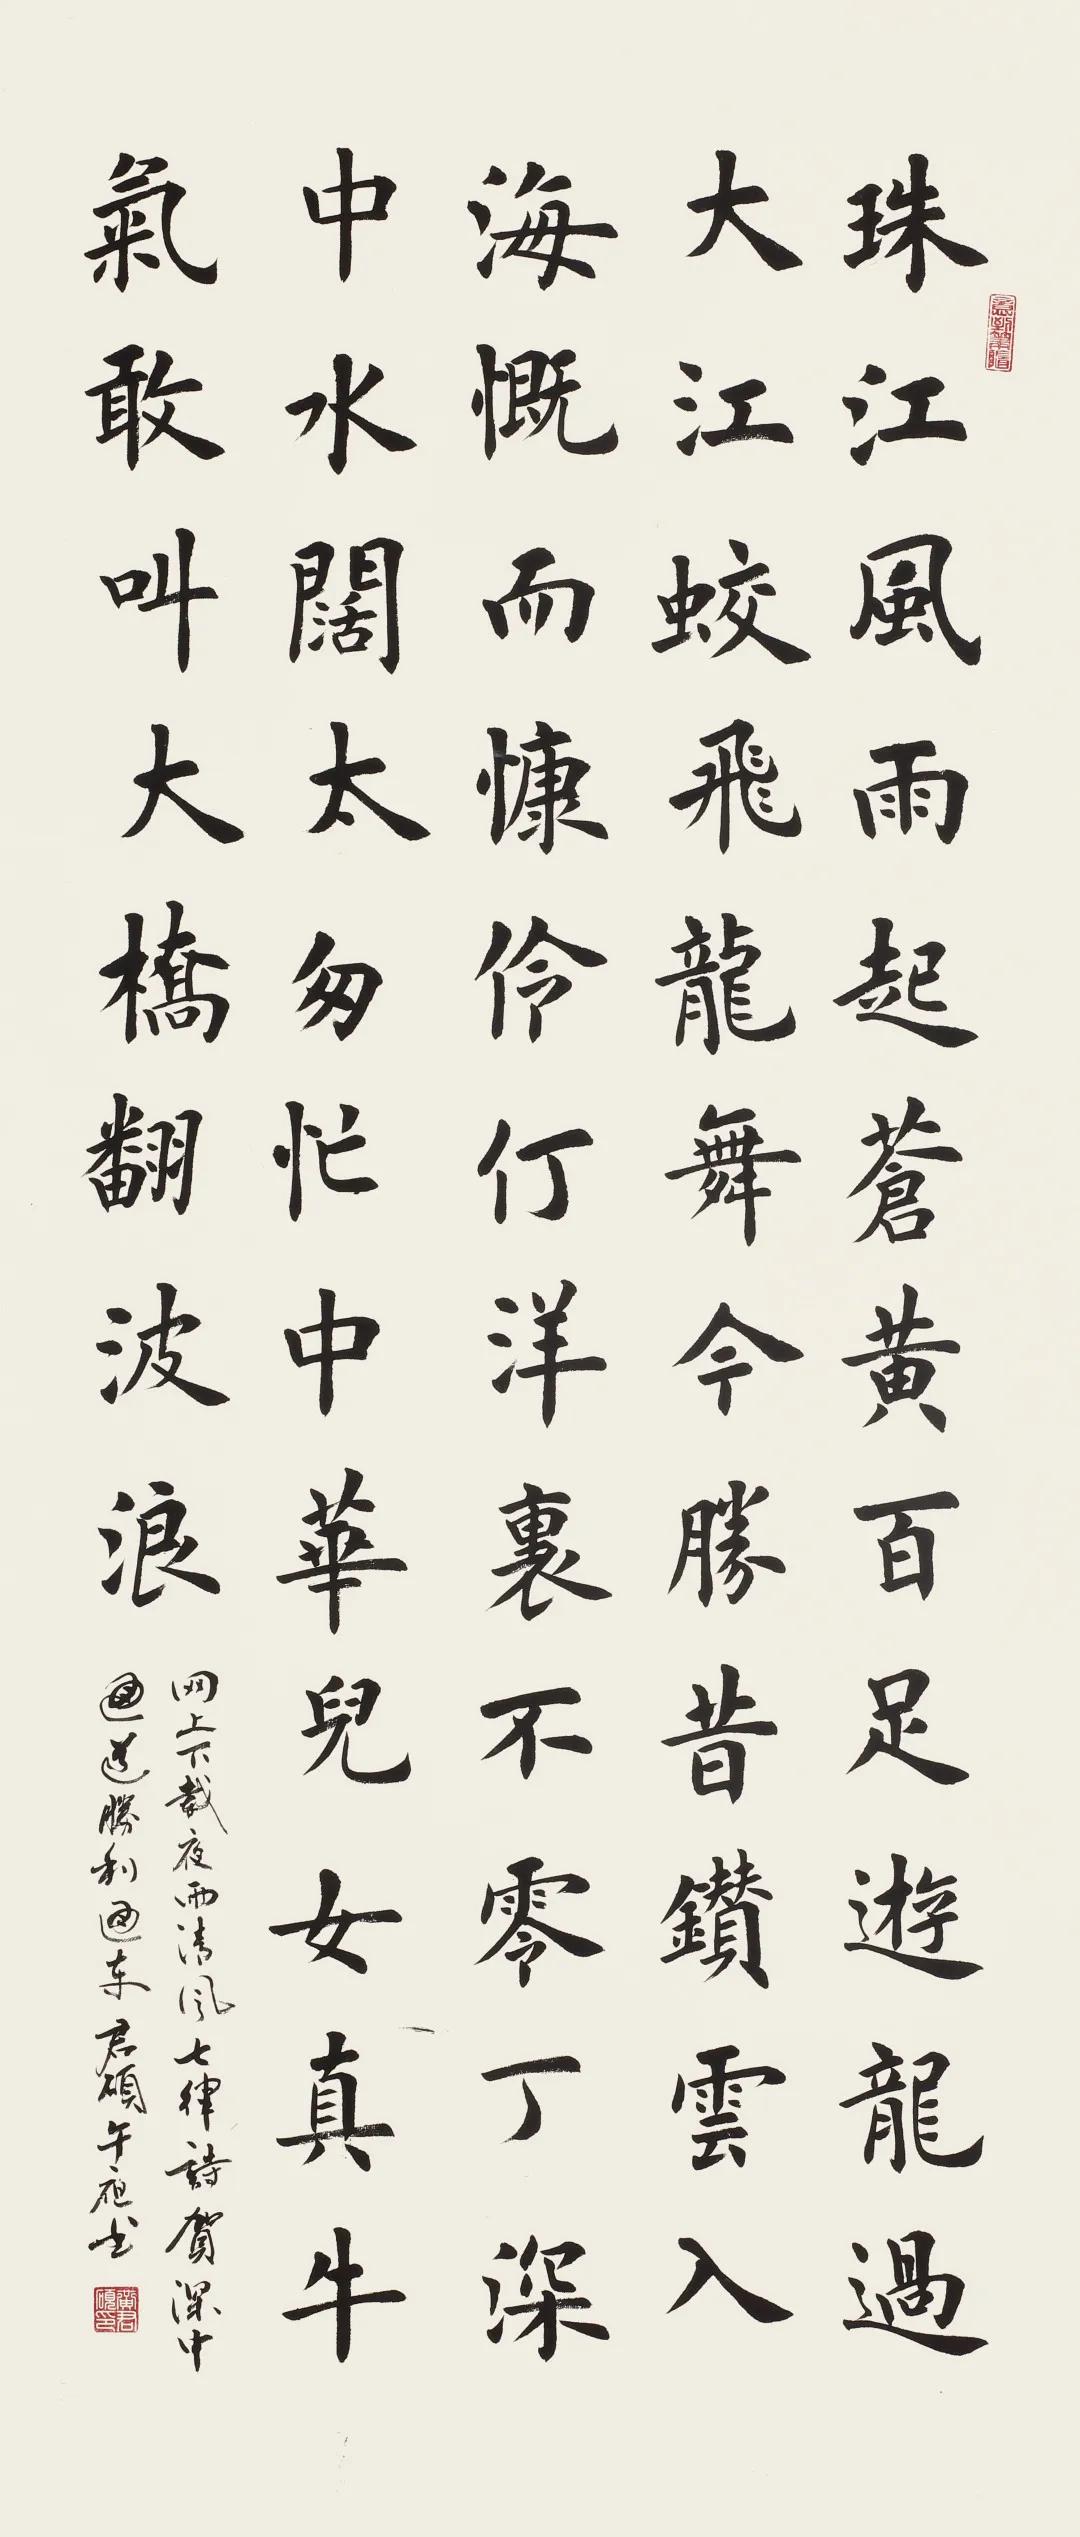 珠江風雨起蒼黄百足遊龍過
大江蛟飛龍舞今勝昔鑚雲入
海慨而慷伶仃洋裏不零丁深
中水闊太匆忙中華兒女真牛
氣敢叫大橋翻波浪
网上下載夜雨清风七律詩賀深中
通道勝利通车君碩午夜书
黄君碩印